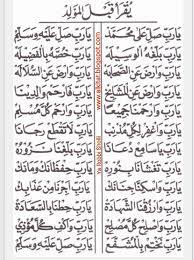 يُقْرَأُ قَبْلَ الْمَوْلِدِ
يَارَبِّ صَلِّ عَلَى مُحَمَّدْ يَارَبِّ صَلِّ عَلَيْهِ وَسَلِّمْ
يَارَبِّ بَلِّغْهُ الْوَسِيْلَةْ يَارَبِّ خُصَّهُ بِالْفَضِيْلَةْ
يَارَبِّ وَارْضَ عَنِ الصَّحَابَةْ يَارَبِّ وَارْضَ عَنِ السُّلَالَةْ
يَارَبِّ وَارْضَ عَنِ الْمَشَايِخْ يَارَبِّ فَارْحَمْ وَالِدِيْنَا
يَارَبِّ وَارْحَمْنَا جَمِيْعًا يَارَبِّ وَارْحَمْ كُلَّ مُسْلِمْ
يَارَبِّ وَاغْفِرْ لِكُلِّ مُذْنِبْ يَارَبِّ لَا تَقْطَعْ رَجَانَا
يَارَبِّ يَا سَامِعْ دُعَانَا يَارَبِّ بَلِّغْنَا نَزُوْرُهْ
يَارَبِّ تَغْشَانَا بِنُوْرِهْ يَارَبِّ حِفْظَانَكْ وَأَمَانَكْ
يَارَبِّ وَاسْكِنَّا جِنَانَكْ يَارَبِّ أَجِرْنَا مِنْ عَذَابِكْ
يَارَبِّ وَارْزُقْنَا الشَّهَادَةْ يَارَبِّ حِطْنَا بِالسَّعَادَةْ
يَارَبِّ وَاصْلِحْ كُلَّ مُصْلِحْ يَارَبِّ وَاكْفِ كُلَّ مُؤْذِيْ
يَارَبِّ نَخْتِمْ بِالْمُشَفَّعْ يَارَبِّ صَلِّ عَلَيْهِ وَسَلِّمْ